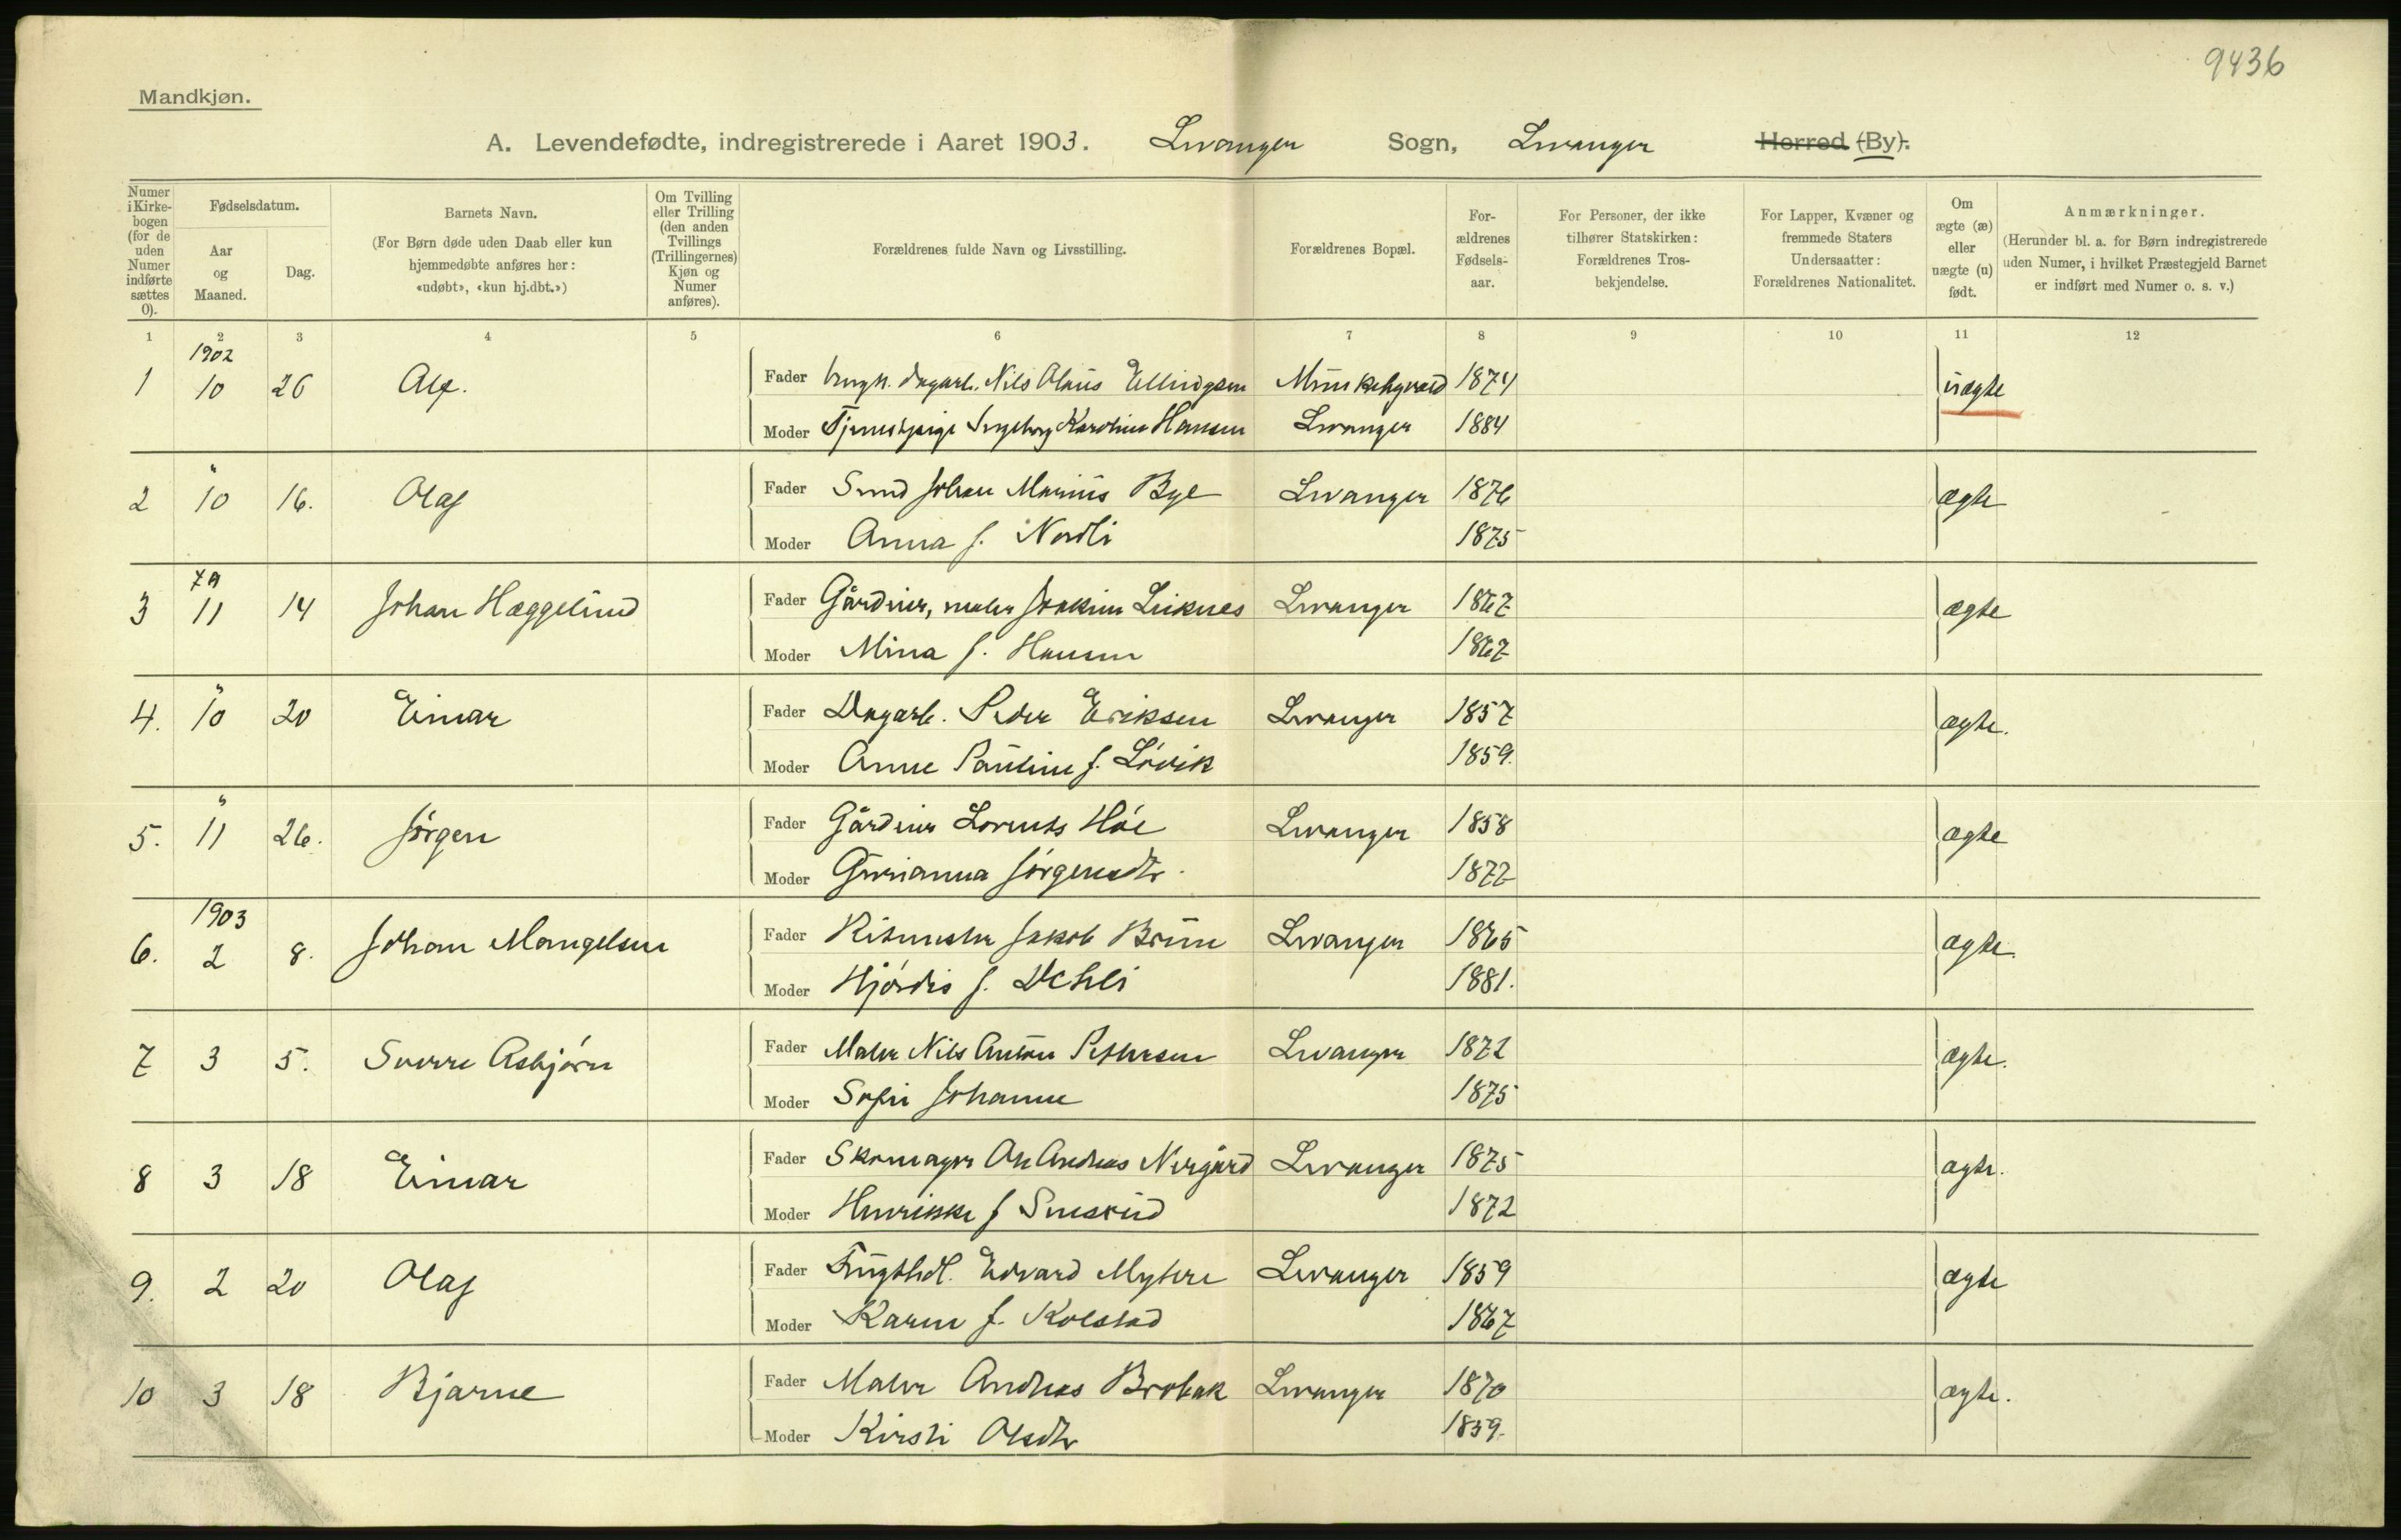 9436
Mandkjøn.
A. Levendefødte, indregistrerede i Aaret 1903. Levanger Sogn, Levanger Herred (By).
Numer i Kirkebogen (for de uden Numer indførte sættes 0).
Fødselsdatum.
Aar og Maaned.
Dag.
Barnets Navn.
(For Børn døde uden Daab eller kun hjemmedøbte anføres her: «udøbt», «kun hj.dbt.»)
Om Tvilling eller Trilling (den anden Tvillings (Trillingernes) Kjøn og Numer anføres).
Forældrenes fulde Navn og Livsstilling.
Forældrenes Bopæl.
Forældrenes Fødselsaar.
For Personer, der ikke tilhører Statskirken: Forældrenes Trosbekjendelse.
For Lapper, Kvæner og fremmede Staters Undersaatter: Forældrenes Nationalitet.
Om ægte (æ) eller uægte (u) født.
Anmærkninger.
(Herunder bl. a. for Børn indregistrerede uden Numer, i hvilket Præstegjeld Barnet er indført med Numer o. s. v.)
1 2 3 4 5 6 7 8 9 10 11 12
1902
1 10 26 Alf. Fader Ungk. dagarb. Nils Olaus Ellingsen 1874 uægte
Moder Tjenestpige Ingeborg Karoline Hansen Levanger 1884
2 " 10 16. Olaf Fader Smed Johan Marius Bye Levanger 1876 ægte
Moder Anna f. Nordli 1875
3 11 14 Johan Hæggelund Fader Gårdeier, maler Joakim Leiknes Levanger 1867 ægte
Moder Mina f. Hansen 1867
4. " 10 20 Einar Fader Dagarb. Peder Eriksen Levanger 1857 ægte.
Moder Anne Pauline f. Lövik 1859.
5. " 11 26. Jörgen Fader Gårdeier Lorents Höe Levanger 1858 ægte
Moder Gurianna Jörgensdtr. 1872
1903
6. 2 8. Johan Mangelsen Fader Ritmester Jakob Brun Levanger 1865 ægte.
Moder Hjördis f. Dehli 1881.
7 3 5. Sverre Asbjörn Fader Maler Nils Anton Petersen Levanger 1872 ægte.
Moder Sofie Johanne 1875
8 3 18 Einar Fader Skomager Ole Andreas Nergård Levanger 1875 ægte.
Moder Henrikke f 1872
9. 2 20 Olaf Fader Frugthdl. Edvard Myhre Levanger 1859 ægte
Moder Karen f. Kolstad 1867
10 3 18 Bjarne Fader Maler Andreas Brobak Levanger 1870 ægte.
Moder Kirsti Olsdtr 1859.